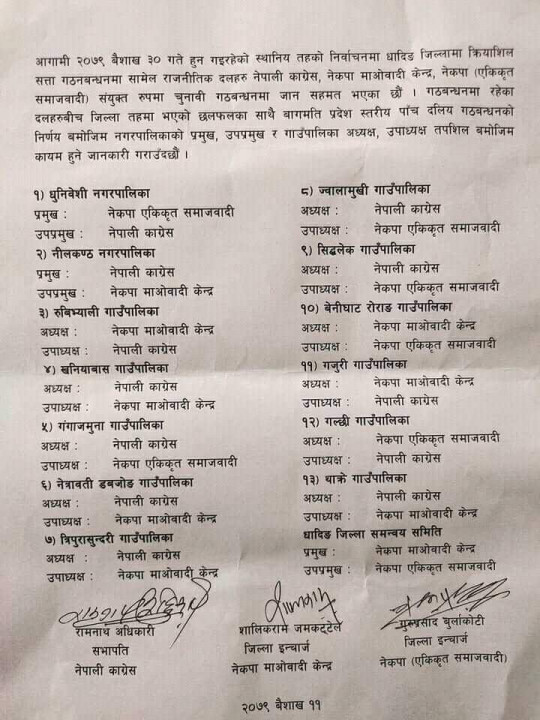 आगामी २०७९ बैशाख ३० गते हुन गइरहेको स्थानिय तहको निर्वाचनमा धादिङ जिल्लामा क्रियाशिल
सत्ता गठनबन्धनमा सामेल राजनीतिक दलहरु नेपाली कांग्रेस, नेकपा माओवादी केन्द्र, नेकपा (एकिकृत
समाजवादी) संयुक्त रुपमा चुनावी गठबन्धनमा जान सहमत भएका छौं । गठबन्धनमा रहेका
दलहरुबीच जिल्ला तहमा भएको छलफलका साथै बागमति प्रदेश स्तरीय पाँच दलिय गठबन्धनको
निर्णय बमोजिम नगरपालिकाको प्रमुख, उपप्रमुख र गाउँपालिका अध्यक्ष, उपाध्यक्ष तपशिल बमोजिम
कायम हुने जानकारी गराउँदछौं ।
१) धुनिबेशी नगरपालिका
प्रमुख : नेकपा एकिकृत समाजवादी
उपप्रमुख : नेपाली काग्रेस
२) नीलकण्ठ नगरपालिका
प्रमुख : नेपाली काग्रेस
उपप्रमुख : नेकपा माओवादी केन्द्र
३) रुबिभ्याली गाउँपालिका
अध्यक्ष : नेकपा माओवादी केन्द्र
उपाध्यक्ष : नेपाली काग्रेस
४) खनियाबास गाउँपालिका
अध्यक्ष : नेपाली काग्रेस
उपाध्यक्ष : नेकपा माओवादी केन्द्र
५) गंगाजमुना गाउँपालिका
अध्यक्ष : नेपाली काग्रेस
उपाध्यक्ष : नेकपा एकिकृत समाजवादी
६) नेत्रावती डबजोङ गाउँपालिका
अध्यक्ष : नेपाली काग्रेस
उपाध्यक्ष : नेकपा माओवादी केन्द्र
७) त्रिपुरासुन्दरी गाउँपालिका
अध्यक्ष : नेपाली काग्रेस
उपाध्यक्ष : नेकपा माओवादी केन्द्र
८) ज्वालामुखी गाउँपालिका
अध्यक्ष : नेपाली काग्रेस
उपाध्यक्ष : नेकपा एकिकृत समाजवादी
९) सिद्धलेक गाउँपालिका
अध्यक्ष : नेपाली काग्रेस
उपाध्यक्ष : नेकपा एकिकृत समाजवादी
१०) बेनीघाट रोराङ गाउँपालिका
अध्यक्ष : नेकपा माओवादी केन्द्र
उपाध्यक्ष : नेकपा एकिकृत समाजवादी
११) गजुरी गाउँपालिका
अध्यक्ष : नेकपा माओवादी केन्द्र
उपाध्यक्ष : नेपाली काग्रेस
१२) गल्छी गाउँपालिका
अध्यक्ष : नेकपा एकिकृत समाजवादी
उपाध्यक्ष : नेपाली काग्रेस
१३) थाक्रे गाउँपालिका
अध्यक्ष : नेपाली काग्रेस
उपाध्यक्ष : नेकपा माओवादी केन्द्र
धादिङ जिल्ला समन्वय समिति
प्रमुख : नेकपा माओवादी केन्द्र
उपप्रमुख : नेकपा एकिकृत समाजवादी
रामनाथ अधिकारी
सभापति
नेपाली काग्रेस
शालिकराम जमकट्टेल
जिल्ला इन्चार्ज
नेकपा माओवादी केन्द्र
गुरुप्रसाद बुर्लाकोटी
जिल्ला इन्चार्ज
नेकपा (एकिकृत समाजवादी)
२०७९ बैशाख ११